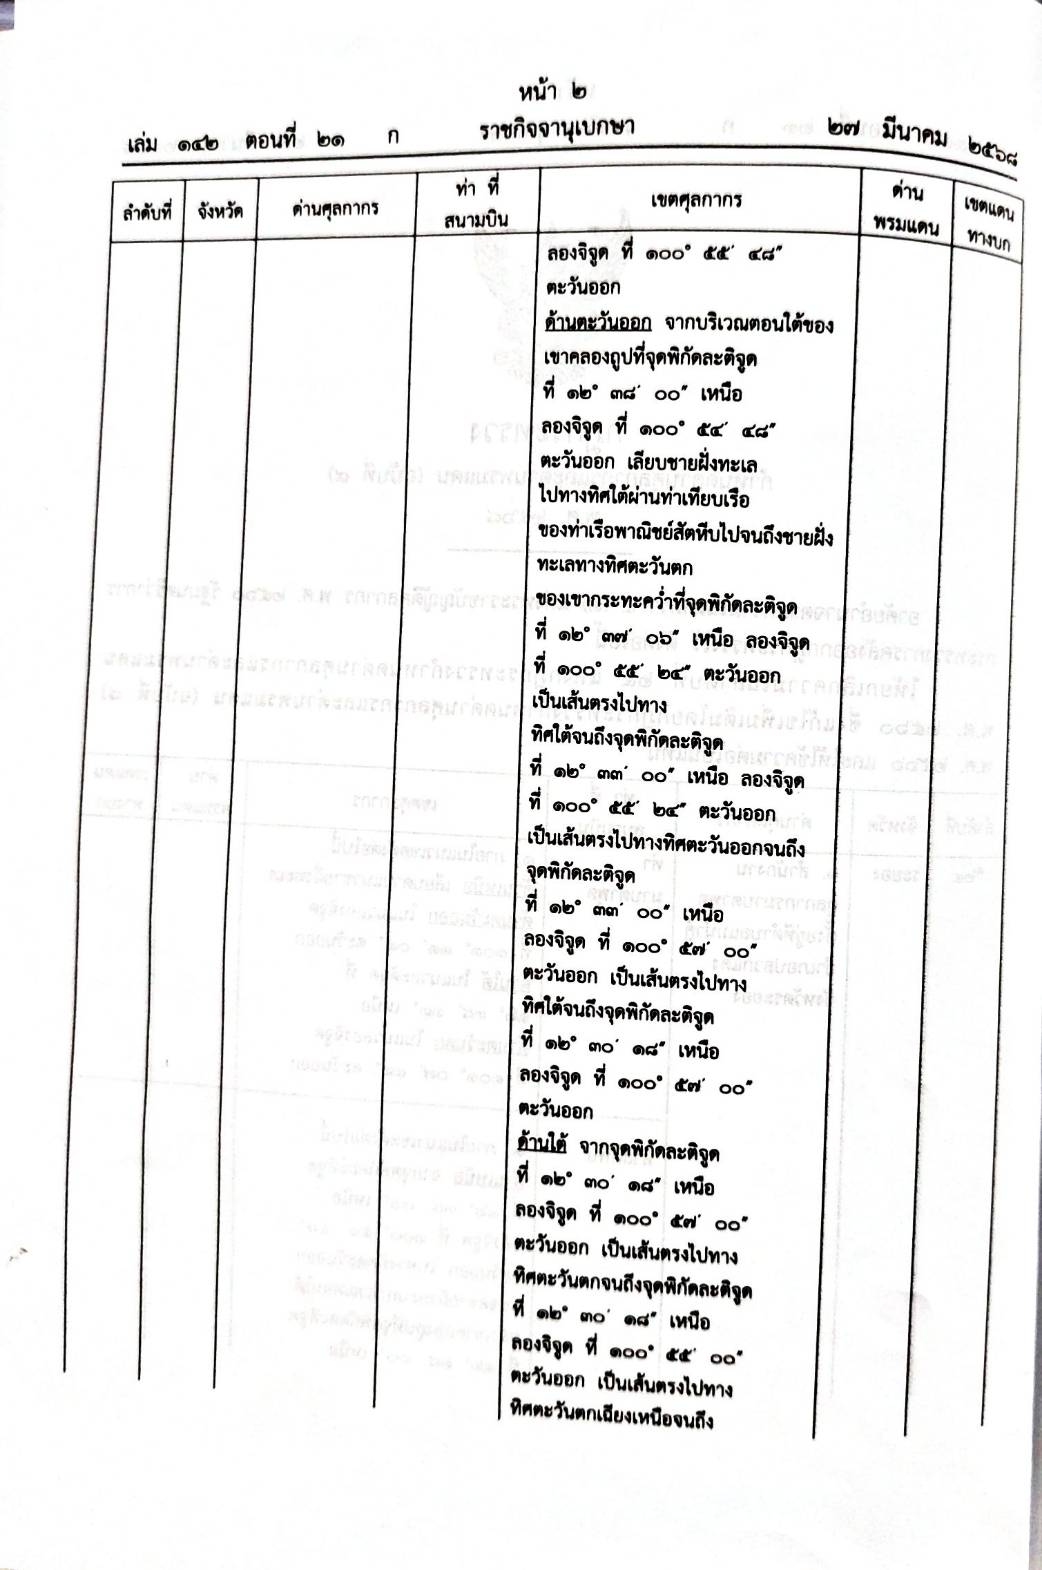 หน้า ๒
เล่ม ๑๔๒ ตอนที่ ๒๑ ก ราชกิจจานุเบกษา ๒๗ มีนาคม ๒๕๖๘
ลำดับที่ จังหวัด ด่านศุลกากร ท่า ที่ สนามบิน เขตศุลกากร ด่าน พรมแดน เขตแดน ทางบก
ลองจิจูด ที่ ๑๐๐° ๕๕′ ๔๘″
ตะวันออก
ด้านตะวันออก จากบริเวณตอนใต้ของ
เขาคลองถูปที่จุดพิกัดละติจูด
ที่ ๑๒° ๓๘′ ๐๐″ เหนือ
ลองจิจูด ที่ ๑๐๐° ๕๔′ ๔๘″
ตะวันออก เลียบชายฝั่งทะเล
ไปทางทิศใต้ผ่านท่าเทียบเรือ
ของท่าเรือพาณิชย์สัตหีบไปจนถึงชายฝั่ง
ทะเลทางทิศตะวันตก
ของเขากระทะคว่ำที่จุดพิกัดละติจูด
ที่ ๑๒° ๓๗′ ๐๖″ เหนือ ลองจิจูด
ที่ ๑๐๐° ๕๕′ ๒๔″ ตะวันออก
เป็นเส้นตรงไปทาง
ทิศใต้จนถึงจุดพิกัดละติจูด
ที่ ๑๒° ๓๓′ ๐๐″ เหนือ ลองจิจูด
ที่ ๑๐๐° ๕๕′ ๒๔″ ตะวันออก
เป็นเส้นตรงไปทางทิศตะวันออกจนถึง
จุดพิกัดละติจูด
ที่ ๑๒° ๓๓′ ๐๐″ เหนือ
ลองจิจูด ที่ ๑๐๐° ๕๗′ ๐๐″
ตะวันออก เป็นเส้นตรงไปทาง
ทิศใต้จนถึงจุดพิกัดละติจูด
ที่ ๑๒° ๓๐′ ๑๘″ เหนือ
ลองจิจูด ที่ ๑๐๐° ๕๗′ ๐๐″
ตะวันออก
ด้านใต้ จากจุดพิกัดละติจูด
ที่ ๑๒° ๓๐′ ๑๘″ เหนือ
ลองจิจูด ที่ ๑๐๐° ๕๗′ ๐๐″
ตะวันออก เป็นเส้นตรงไปทาง
ทิศตะวันตกจนถึงจุดพิกัดละติจูด
ที่ ๑๒° ๓๐′ ๑๘″ เหนือ
ลองจิจูด ที่ ๑๐๐° ๕๕′ ๐๐″
ตะวันออก เป็นเส้นตรงไปทาง
ทิศตะวันตกเฉียงเหนือจนถึง